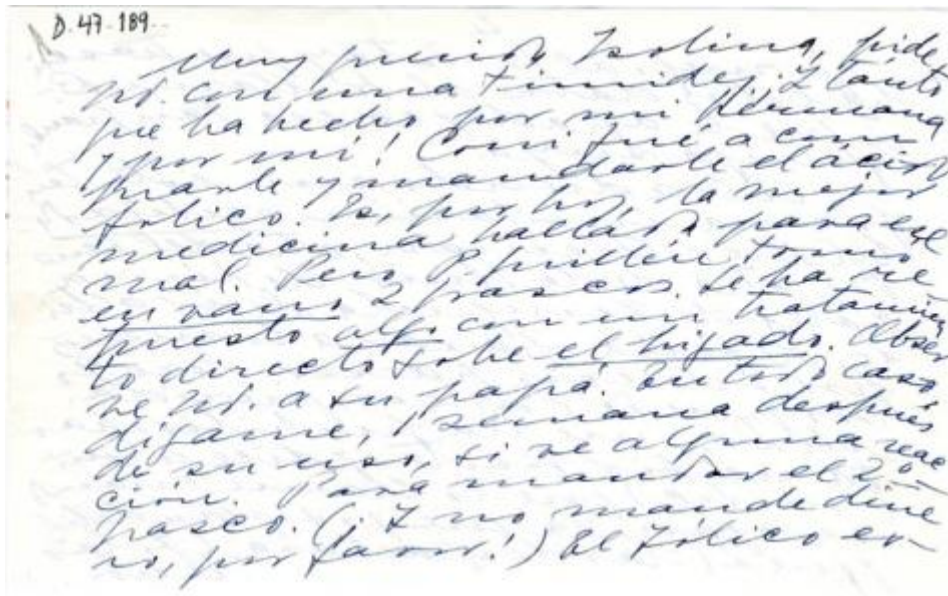 D. 47-189
Muy querida Isolina, pide
Ud. con una timidez. Y tanto
que ha hecho por mi hermana
y por mí! Corrí fué a com
prarle y mandarle el ácido
fólico. Es, por hoy, la mejor
medicina hallada para ese
mal. Pero P. Guillén tomó
en vano 2 frascos. Se ha re
puesto algo con un tratamien
to directo sobre el hígado. Obser
ve Ud. a su papá. En todo caso,
dígame, 1 semana después
de su uso, si ve alguna reac
ción. Para mandar el 2º
frasco. (¡Y no mande dine
ro, por favor!) El fólico es-